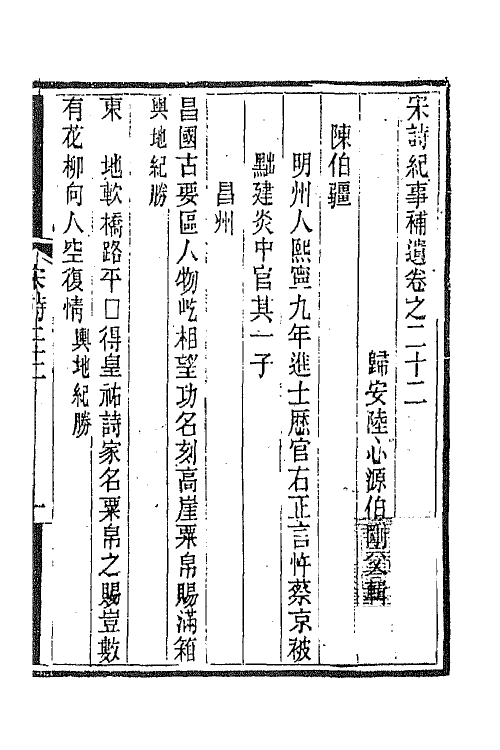 宋詩紀事補遺卷之二十二
歸安陸心源伯剛父輯
陳伯疆
明州人熙寧九年進士歷官右正言忤蔡京被
黜建炎中官其一子
昌州
昌國古要區人物屹相望功名刻高崖粟帛賜滿箱
輿地紀勝
東　地軟橋路平口得皇祐詩家名粟帛之賜豈數
有花柳向人空復情 輿地紀勝
宋詩二十二
一